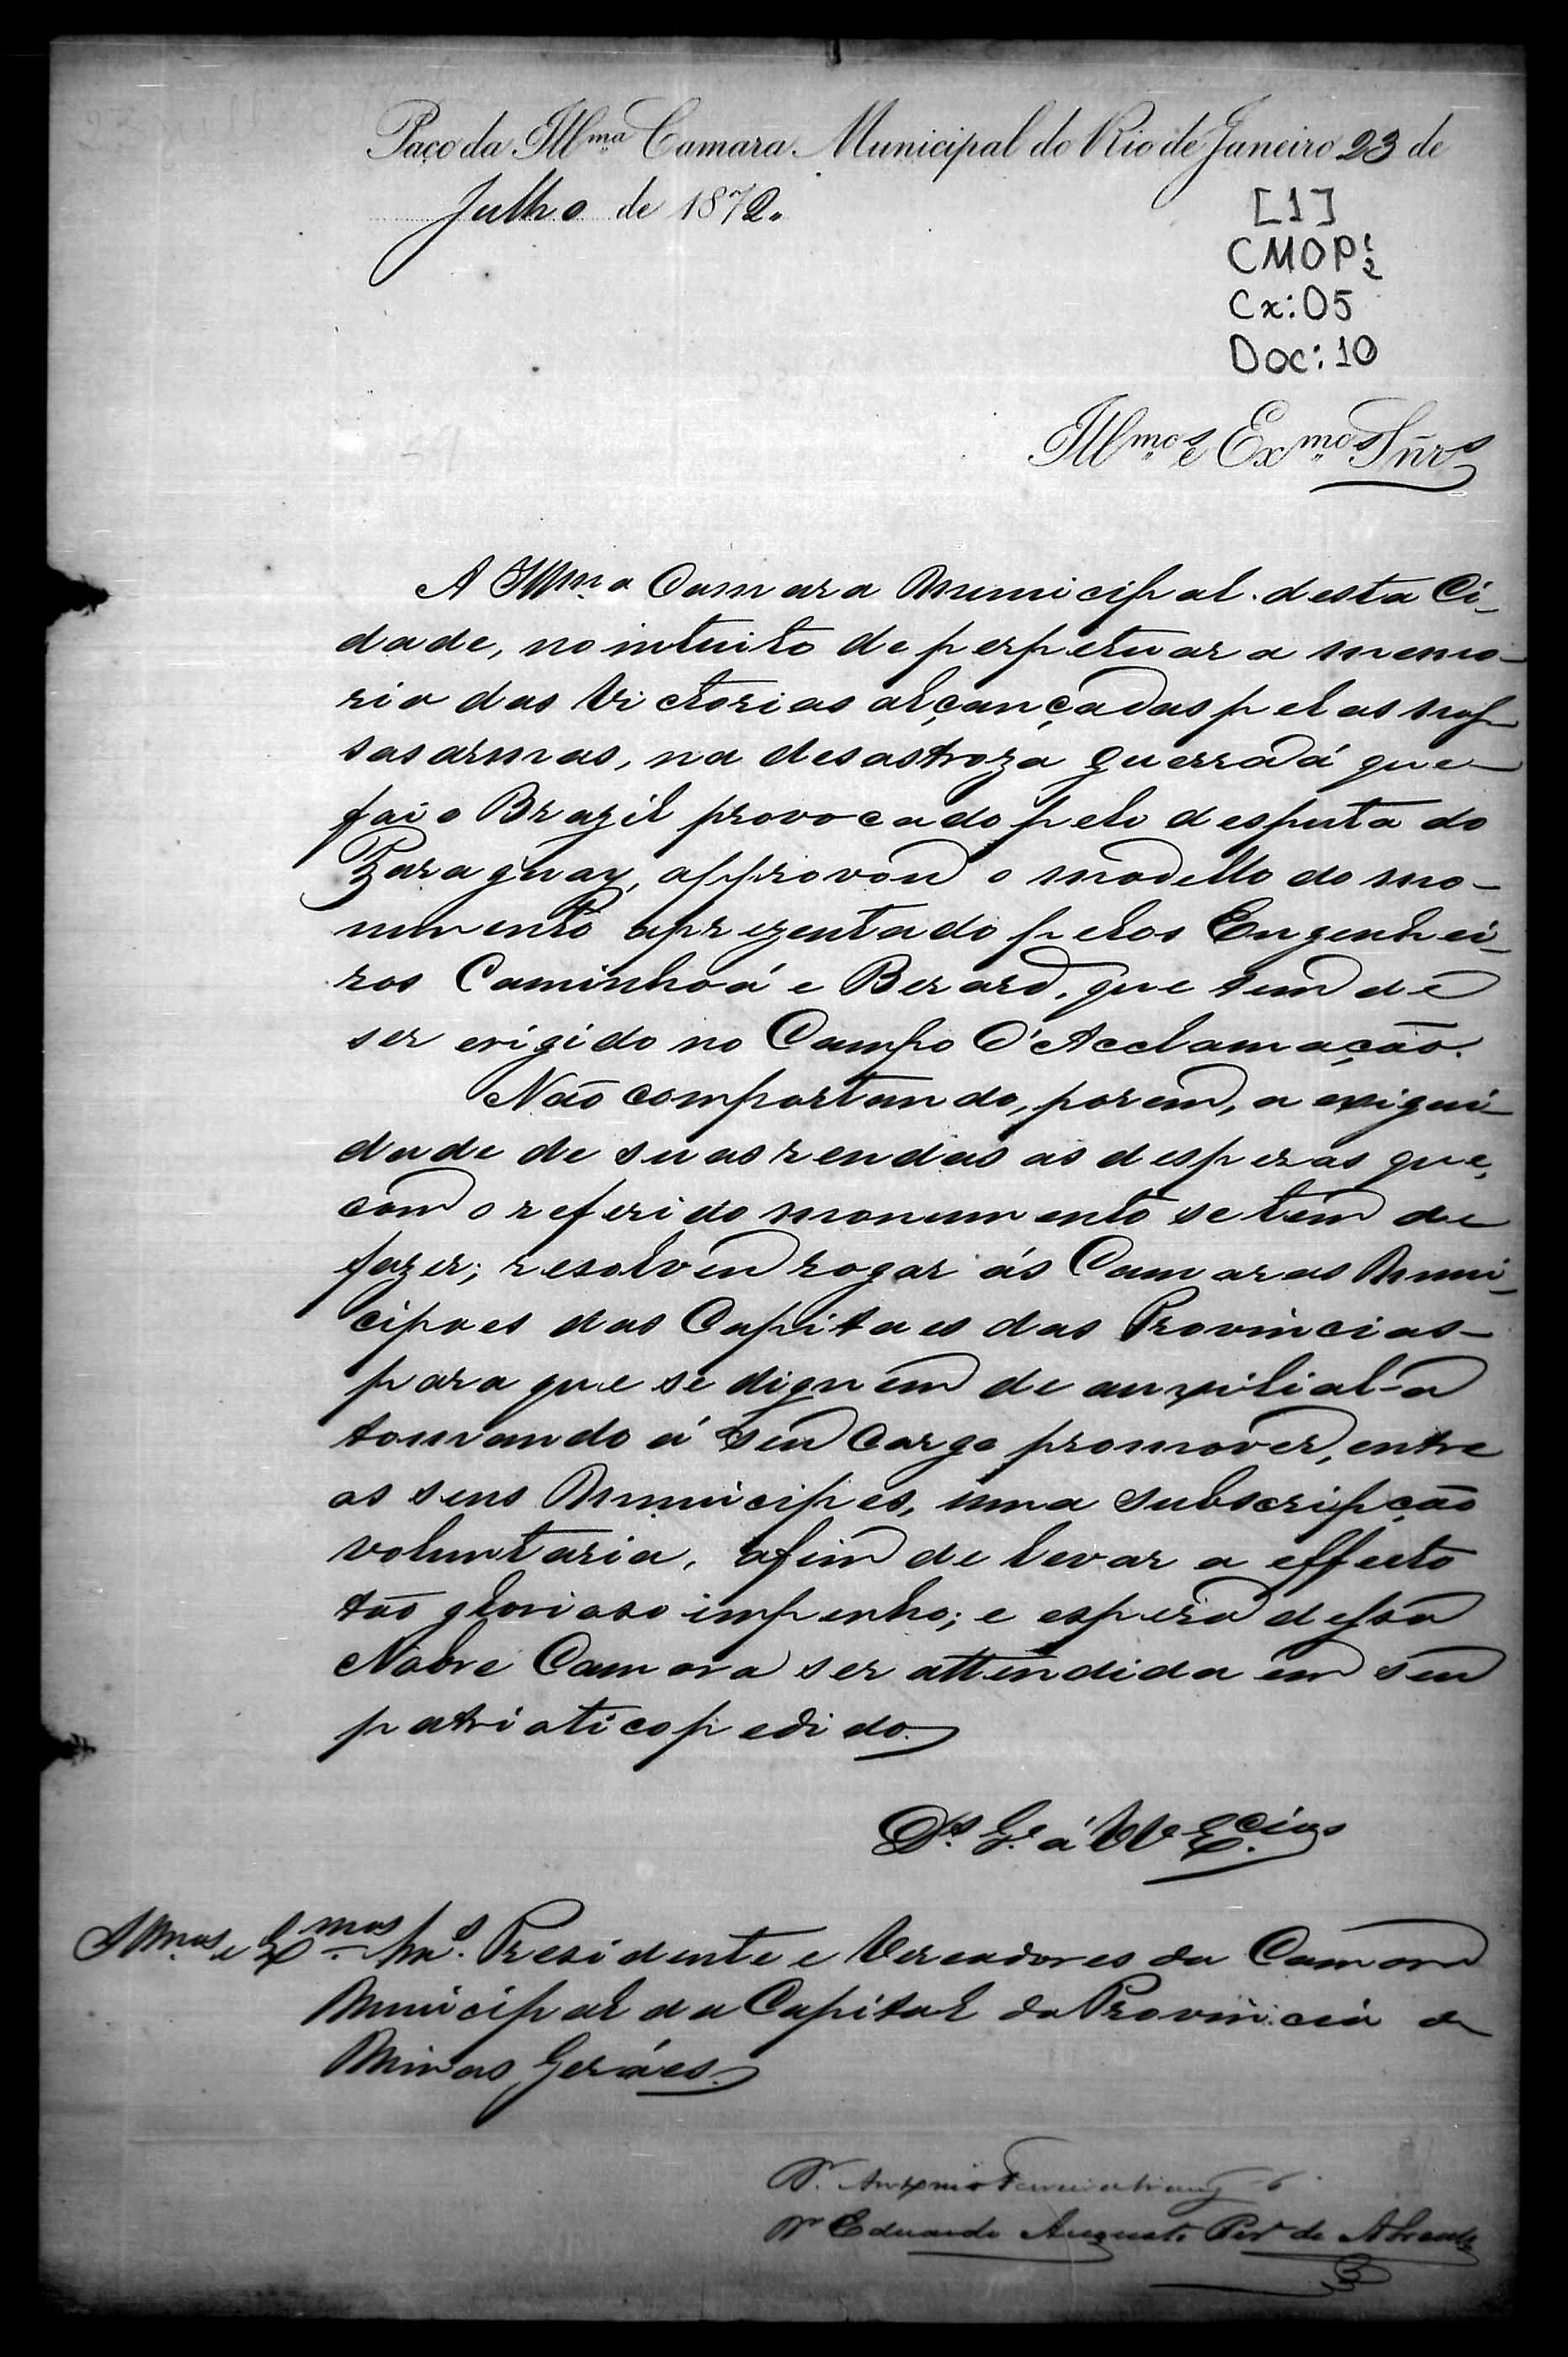 Paço da Illma Camara Municipal do Rio de Janeiro 23 de
Julho de 1872.
[1]
CMOP 2
Cx: 05
Doc: 10
Illmos e Exmos Snrs
A Illma Camara Municipal desta Ci-
dade, no intuito de perpetuar a memo-
ria das Victorias alçançadas pelas nos-
sas armas, na desastroza guerra á que
foi o Brazil provocado pelo despota do
Paraguay, approvou o modello do mo-
numento aprezentado pelos Engenhei-
ros Caminhoá e Berard, que tem de
ser erigido no Campo d'Acclamação.
Não comportando, porem, a exigui-
dade de suas rendas as despezas que,
com o referido monumento se tem de
fazer; resolveu rogar ás Camaras Muni-
cipaes das Capitaes das Provincias-
para que se dignem de auxilial-a
tomando á seu cargo promover, entre
os seus Municipes, uma subscripção
voluntaria, afim de levar a effeito
tão glorioso impenho; e espera dessa
Nobre Camara ser attendida em seu
patriotico pedido.
Ds. Ge. á VV. Excias
Illmos e Exmos Snrs. Presidente e Vereadores da Camara
Municipal da Capital da Provincia de
Minas Geráes.
Dr. Antonio Ferreira
Dr Eduardo Augusto Pera de Abreu